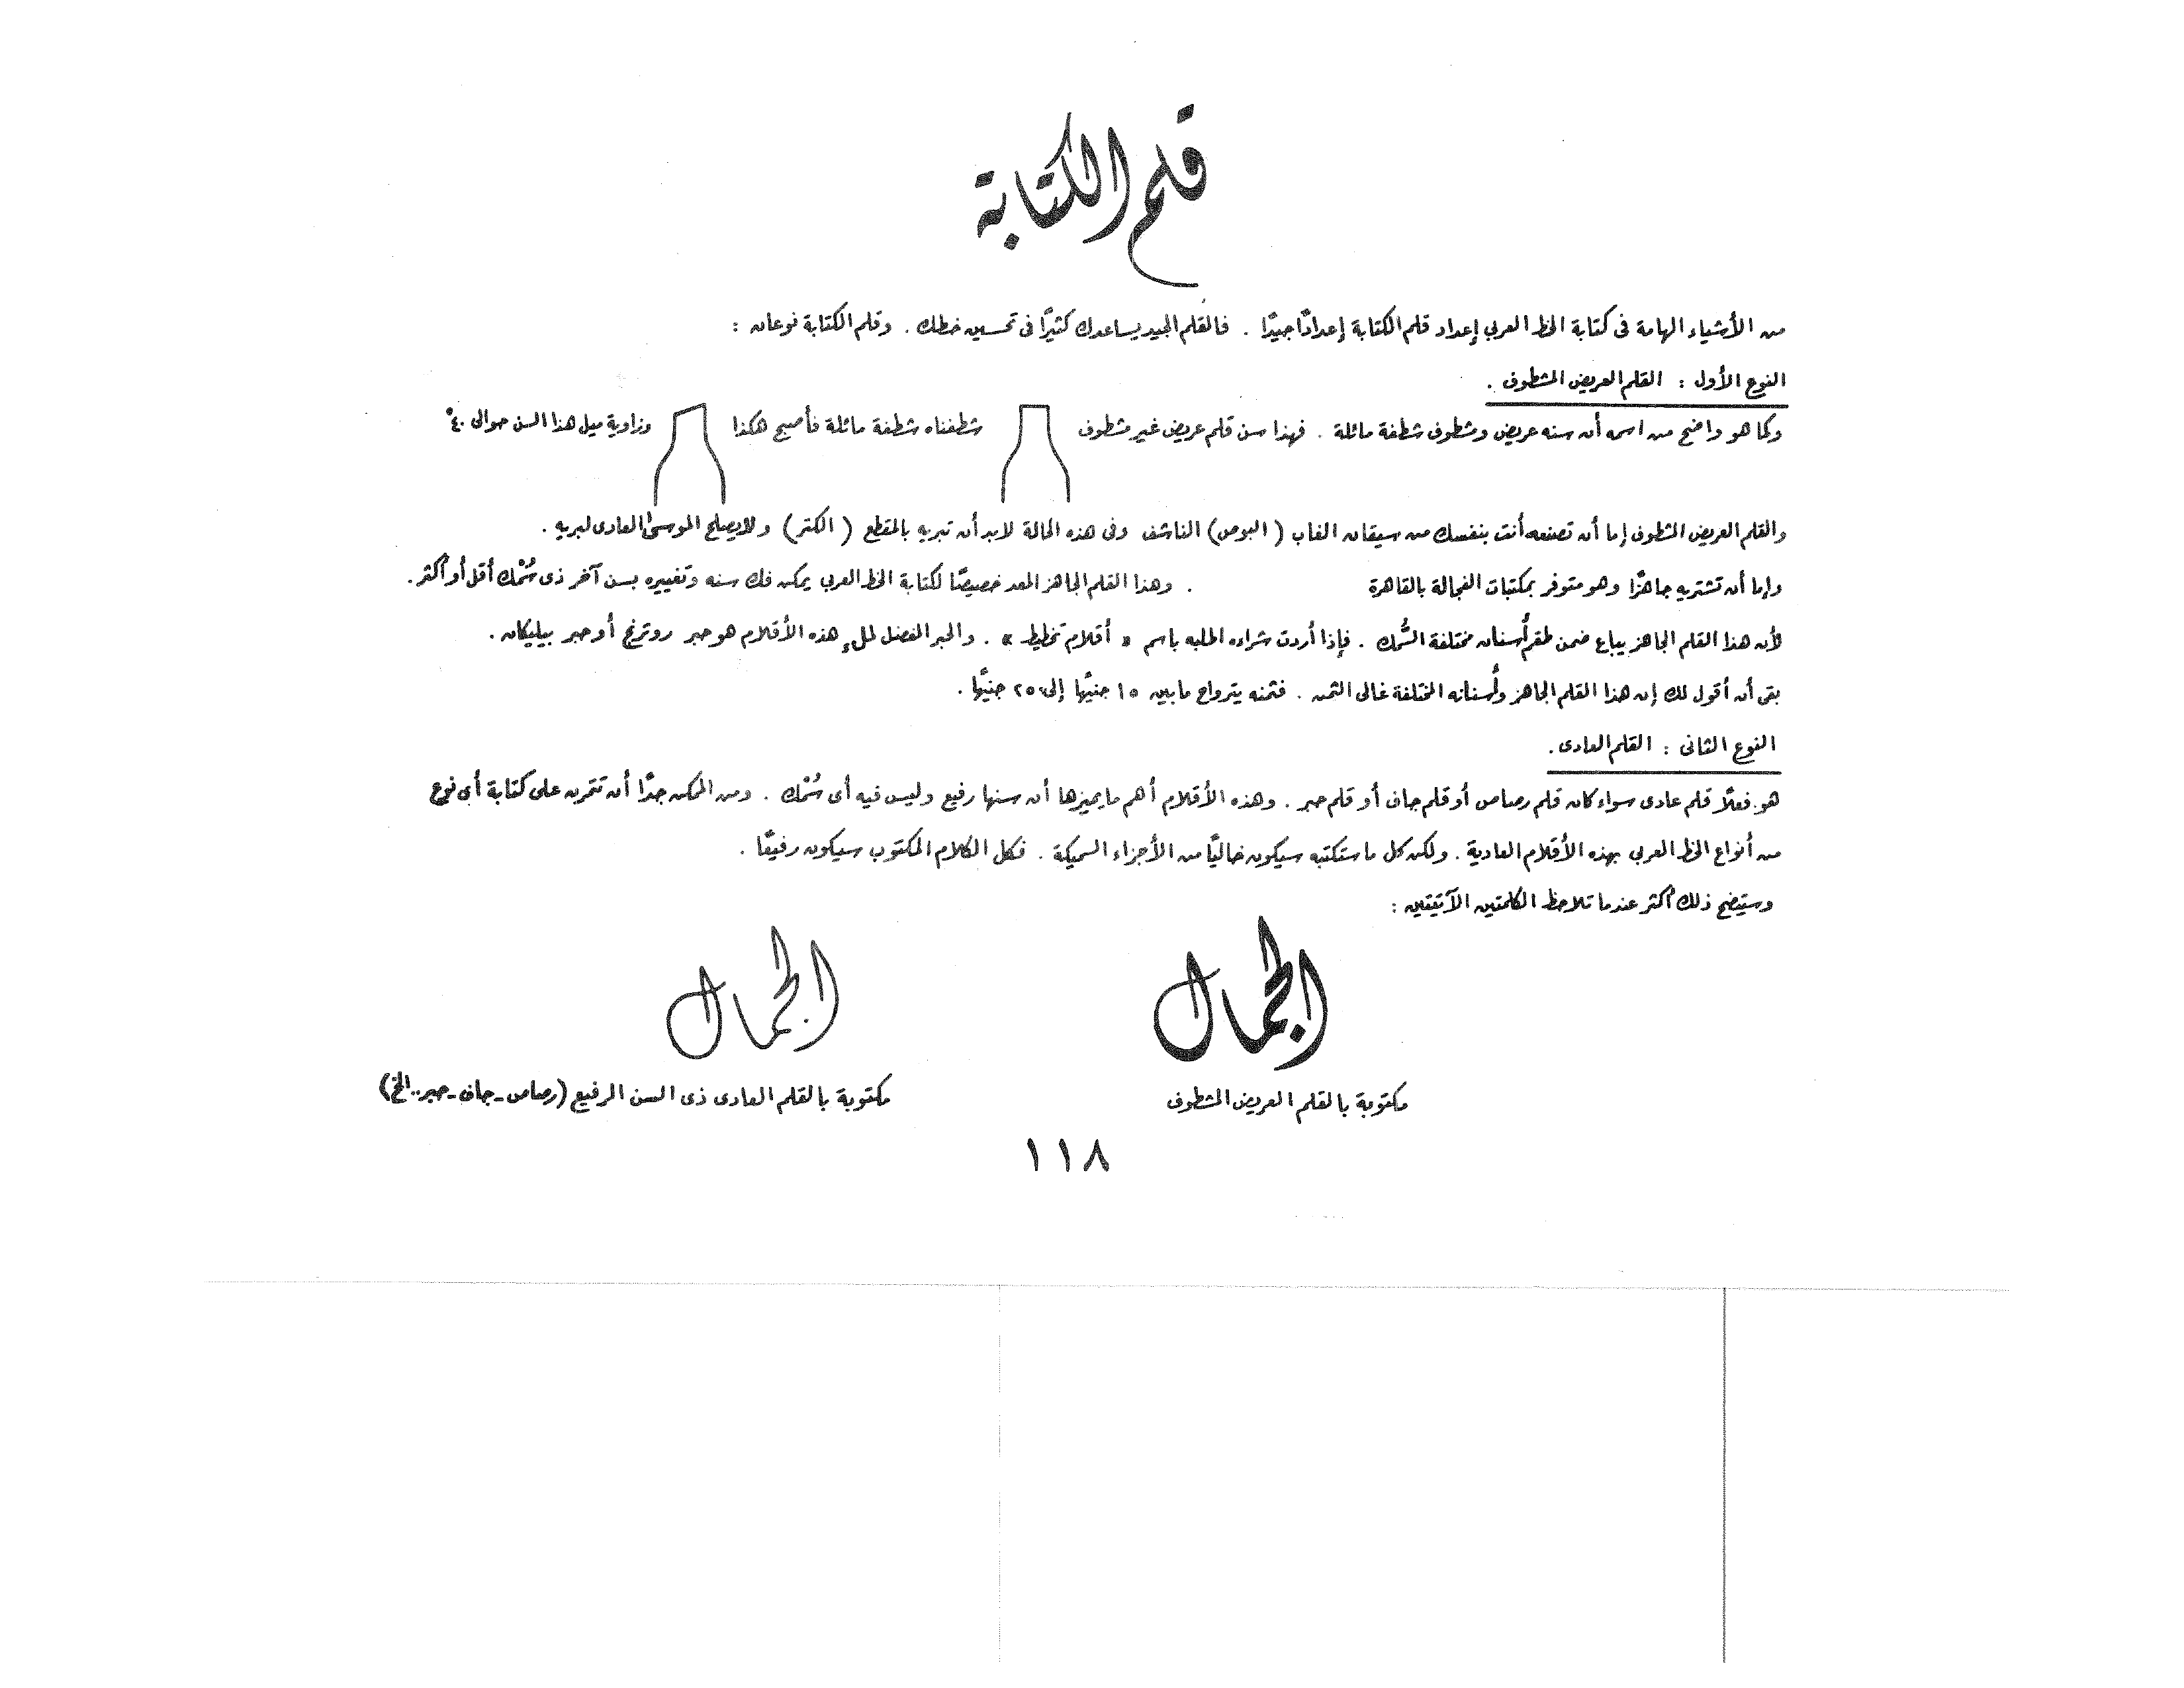 قلم الكتابة
من الأشياء الهامة فى كتابة الخط العربي إعداد قلم الكتابة إعدادًا جيدًا . فالقلم الجيد يساعدك كثيرًا فى تحسين خطك . وقلم الكتابة نوعان :
النوع الأول : القلم العريض المشطوف .
وكما هو واضح من اسمه أن سنه عريض ومشطوف شطفة مائلة . فهذا سن قلم عريض غير مشطوف شطفناه شطفة مائلة فأصبح هكذا وزاوية ميل هذا السن حوالى ٤٠°
والقلم العريض المشطوف إما أن تصنعه أنت بنفسك من سيقان الغاب ( البوص ) الناشف وفى هذه الحالة لابد أن تبريه بالمقطع ( الكتر ) ولا يصلح الموسى العادى لبريه .
وإما أن تشتريه جاهزًا وهو متوفر بمكتبات الفجالة بالقاهرة . وهذا القلم الجاهز المعد خصيصًا لكتابة الخط العربي يمكن فك سنه وتغييره بسن آخر ذى سُمْك أقل أو أكثر .
لأن هذا القلم الجاهز يباع ضمن طقم أسنان مختلفة السُّمك . فإذا أردت شراءه اطلبه باسم « أقلام تخطيط » . والحبر المفضل لملء هذه الأقلام هو حبر روترنج أو حبر بيليكان .
بقى أن أقول لك إن هذا القلم الجاهز وأسنانه المختلفة غالى الثمن . فثمنه يتراوح ما بين ١٥ جنيهًا إلى ٢٥ جنيهًا .
النوع الثانى : القلم العادى .
هو فعلًا قلم عادى سواء كان قلم رصاص أو قلم جاف أو قلم حبر . وهذه الأقلام أهم ما يميزها أن سنها رفيع وليس فيه أى سُمْك . ومن الممكن جدًا أن تتمرن على كتابة أى نوع
من أنواع الخط العربي بهذه الأقلام العادية . ولكن كل ما ستكتبه سيكون خاليًا من الأجزاء السميكة . فكل الكلام المكتوب سيكون رفيعًا .
وسيتضح ذلك أكثر عندما تلاحظ الكلمتين الآتيتين :
الجمال الجمال
مكتوبة بالقلم العريض المشطوف مكتوبة بالقلم العادى ذى السن الرفيع (رصاص - جاف - حبر .. الخ)
١١٨